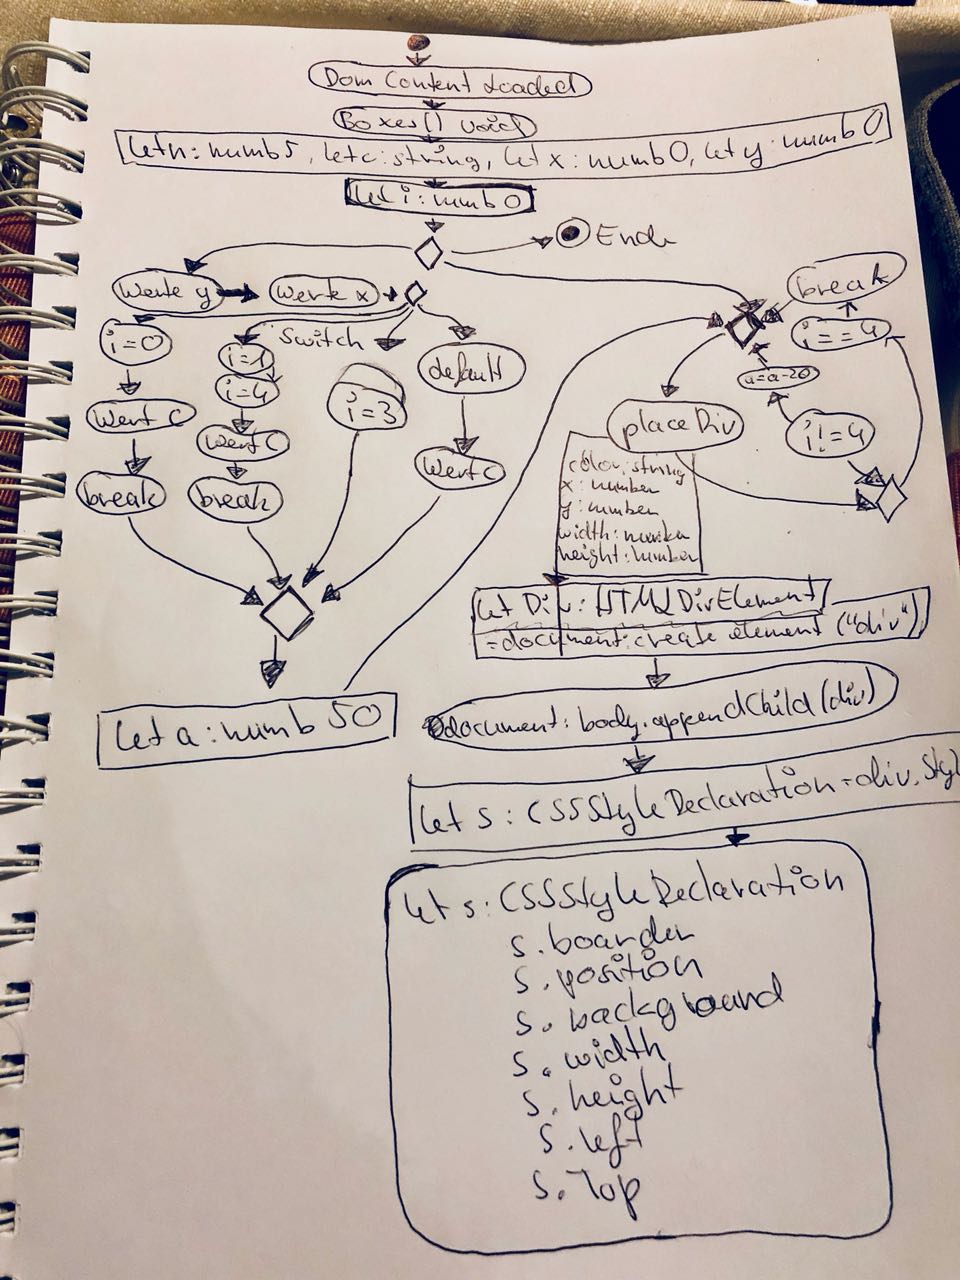 Dom Content Loaded
Boxes() void
let n: numb 5, let c: string, let x: numb 0, let y: numb 0
let i: numb 0
Ende
Werte y
Werte x
Switch
i=0
Wert C
break
i=1
i=4
Wert C
break
i=3
default
Wert C
let a: numb 50
break
i==4
a=a-20
i!=4
placeDiv
color: string
x: number
y: number
width: number
height: number
let Div: HTMLDivElement
=document.create element ("div")
document: body.appendChild(div)
let s: CSSStyleDeclaration=div.Styl
let s: CSSStyleDeclaration
s.boarder
s.position
s.background
s.width
s.height
s.left
s.Top